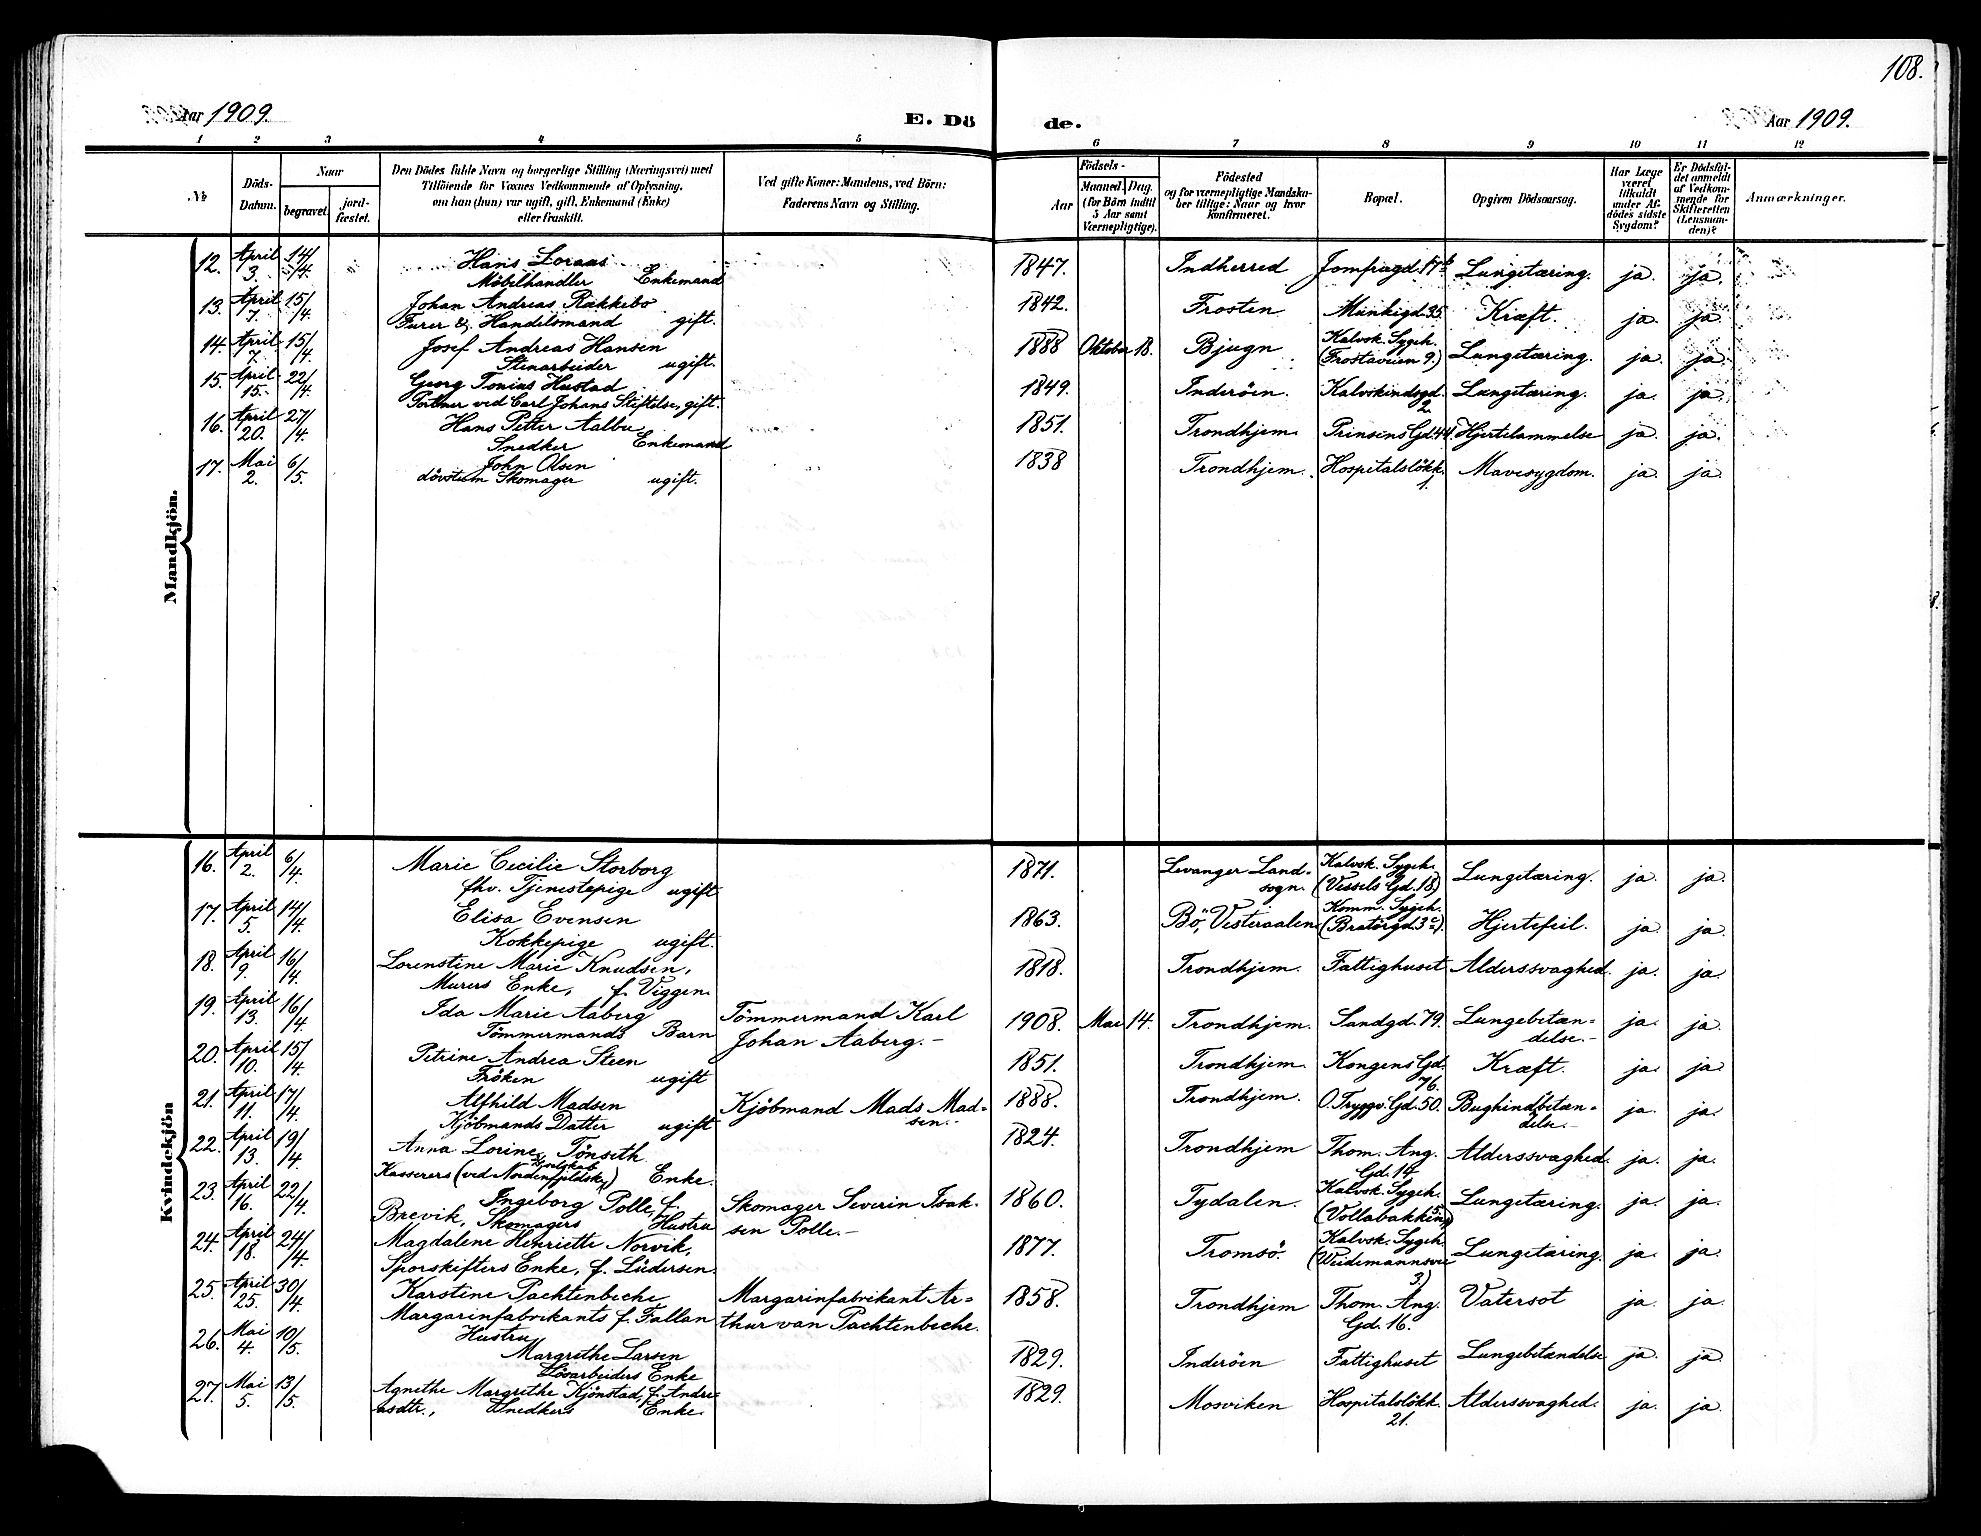 108.
Aar 1909.
E. Dö
de.
Aar 1909.
1 2 3 4 5 6 7 8 9 10 11 12
№
Döds-Datum.
Naar
begravet.
jord-fæstet.
Den Dödes fulde Navn og borgerlige Stilling (Næringsvei) med
Tilföiende for Voxnes Vedkommende af Oplysning,
om han (hun) var ugift, gift, Enkemand (Enke)
eller fraskilt.
Ved gifte Koner: Mandens, ved Börn:
Faderens Navn og Stilling.
Födsels-
Aar
Maaned. Dag.
(for Börn indtil
5 Aar samt
Værnepligtige).
Födested
og for værnepligtige Mandska-
ber tillige: Naar og hvor
konfirmeret.
Bopæl.
Opgiven Dödsaarsag.
Har Læge
været
tilkaldt
under Af-
dödes sidste
Sygdom?
Er Dödsfal-
det anmeldt
af Vedkom-
mende for
Skifteretten
(Lensman-
den)?
Anmærkninger.
Mandkjön.
12. April 3. 14/4. Hans Loraas 1847. Indherred Jomfrugd. 17b Lungetæring. ja. ja.
Möbelhandler Enkemand
13. April 7. 15/4. Johan Andreas Rækkebo 1842. Frosten Munkegd. 35. Kræft. ja. ja
Furer & Handelsmand gift.
14. April 7. 15/4. Josef Andreas Hansen 1888 Oktober 18. Bjugn Kalvsk. Sygeh. (Frostaveien 9.) Lungetæring. ja. ja.
Stenarbeider ugift.
15. April 15. 22/4. Georg Tonius Hustad 1849. Inderöen. Kalvskindsgd. 2. Lungetæring. ja. ja
Portner ved Carl Johans Stiftelse, gift.
16. April 20. 27/4. Hans Petter Aalbu 1851. Trondhjem. Prinsens Gd. 44. Hjertelammelse ja. ja.
Snedker Enkemand
17. Mai 2. 6/5. John Olsen 1838 Trondhjem. Hospitalslökk. 1. Mavesygdom. ja. ja.
dövstum Skomager ugift.
Kvindekjön
16. April 2. 6/4. Marie Cecilie Storborg 1871. Levanger Landsogn. Kalvsk. Sygeh. (Vessels Gd. 18) Lungetæring. ja. ja.
fhv. Tjenestepige ugift
17. April 5. 14/4. Elisa Evensen 1863. Bö, Vesteraalen Komm. Sygeh. (Bratörgd. 3c). Hjertefeil. ja. ja.
Kokkepige ugift.
18. April 9. 16/4. Lorenstine Marie Knudsen, 1818. Trondhjem. Fattighuset Alderssvaghed. ja. ja.
Murers Enke, f. Viggen.
19. April 13. 16/4. Ida Marie Aaberg Tömmermand Karl 1908. Mai 14. Trondhjem. Sandgd. 79. Lungebetæn=delse.- ja. ja.
Tömmermands Barn Johan Aaberg.-
20. April 10. 15/4. Petrine Andrea Steen 1851. Trondhjem. Kongens Gd. 76. Kræft. ja. ja.
Fröken ugift
21. April 11. 17/4. Alfhild Madsen Kjöbmand Mads Mad=sen.- 1888. Trondhjem. O. Tryggv. Gd. 50. Bughindbetæn=delse.- ja. ja.
Kjöbmands Datter ugift
22. April 13. 19/4. Anna Lorine Tönseth 1824. Trondhjem Thom. Ang. Gd. 14 Alderssvaghed. ja. ja.
Kasserers (ved Nordenfjeldske Enke.
23. April 16. 22/4. Ingeborg Polle, f. Skomager Severin Isak- 1860. Tydalen. Kalvsk. Sygeh. (Vollabakken 5) Lungetæring. ja. ja.
Brevik, Skomagers Hustru sen Polle.-
24. April 18. 24/4. Magdalene Henriette Norvik, 1877. Tromsö. Kalvsk. Sygeh. (Weidemannsvei 3.) Lungetæring. ja. ja.
Sporskifters Enke, f. Lüdersen.
25. April 25. 30/4. Karstine Pachtenbeche Margarinfabrikant Ar= 1858. Trondhjem Thom. Ang. Gd. 16. Vatersot ja. ja.
Margarinfabrikants f. Fallan thur van Pachtenbeche.
Hustru
26. Mai 4. 10/5. Margrethe Larsen 1829. Inderöen Fattighuset Lungebetændelse ja. ja
Lösarbeiders Enke
27. Mai 5. 13/5. Agnethe Margrethe Kjönstad, f. Andre= 1829. Mosviken Hospitalslökk. 21. Alderssvaghed. ja. ja.
asdtr., Snedkers Enke.